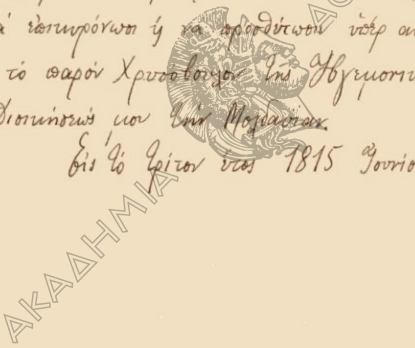 ἐπικυρόνωσι ἢ νὰ προσθέτωσιν ὑπὲρ αὐ
τὸ παρὸν Χρυσόβουλον τῆς Ἡγεμονικ
Διοικήσεώς μου τὴν Μολδαυΐαν.
Εἰς τὸ τρίτον ἔτος 1815 Ἰουνίο
ΑΚΑΔΗΜΙΑ
ΑΘ